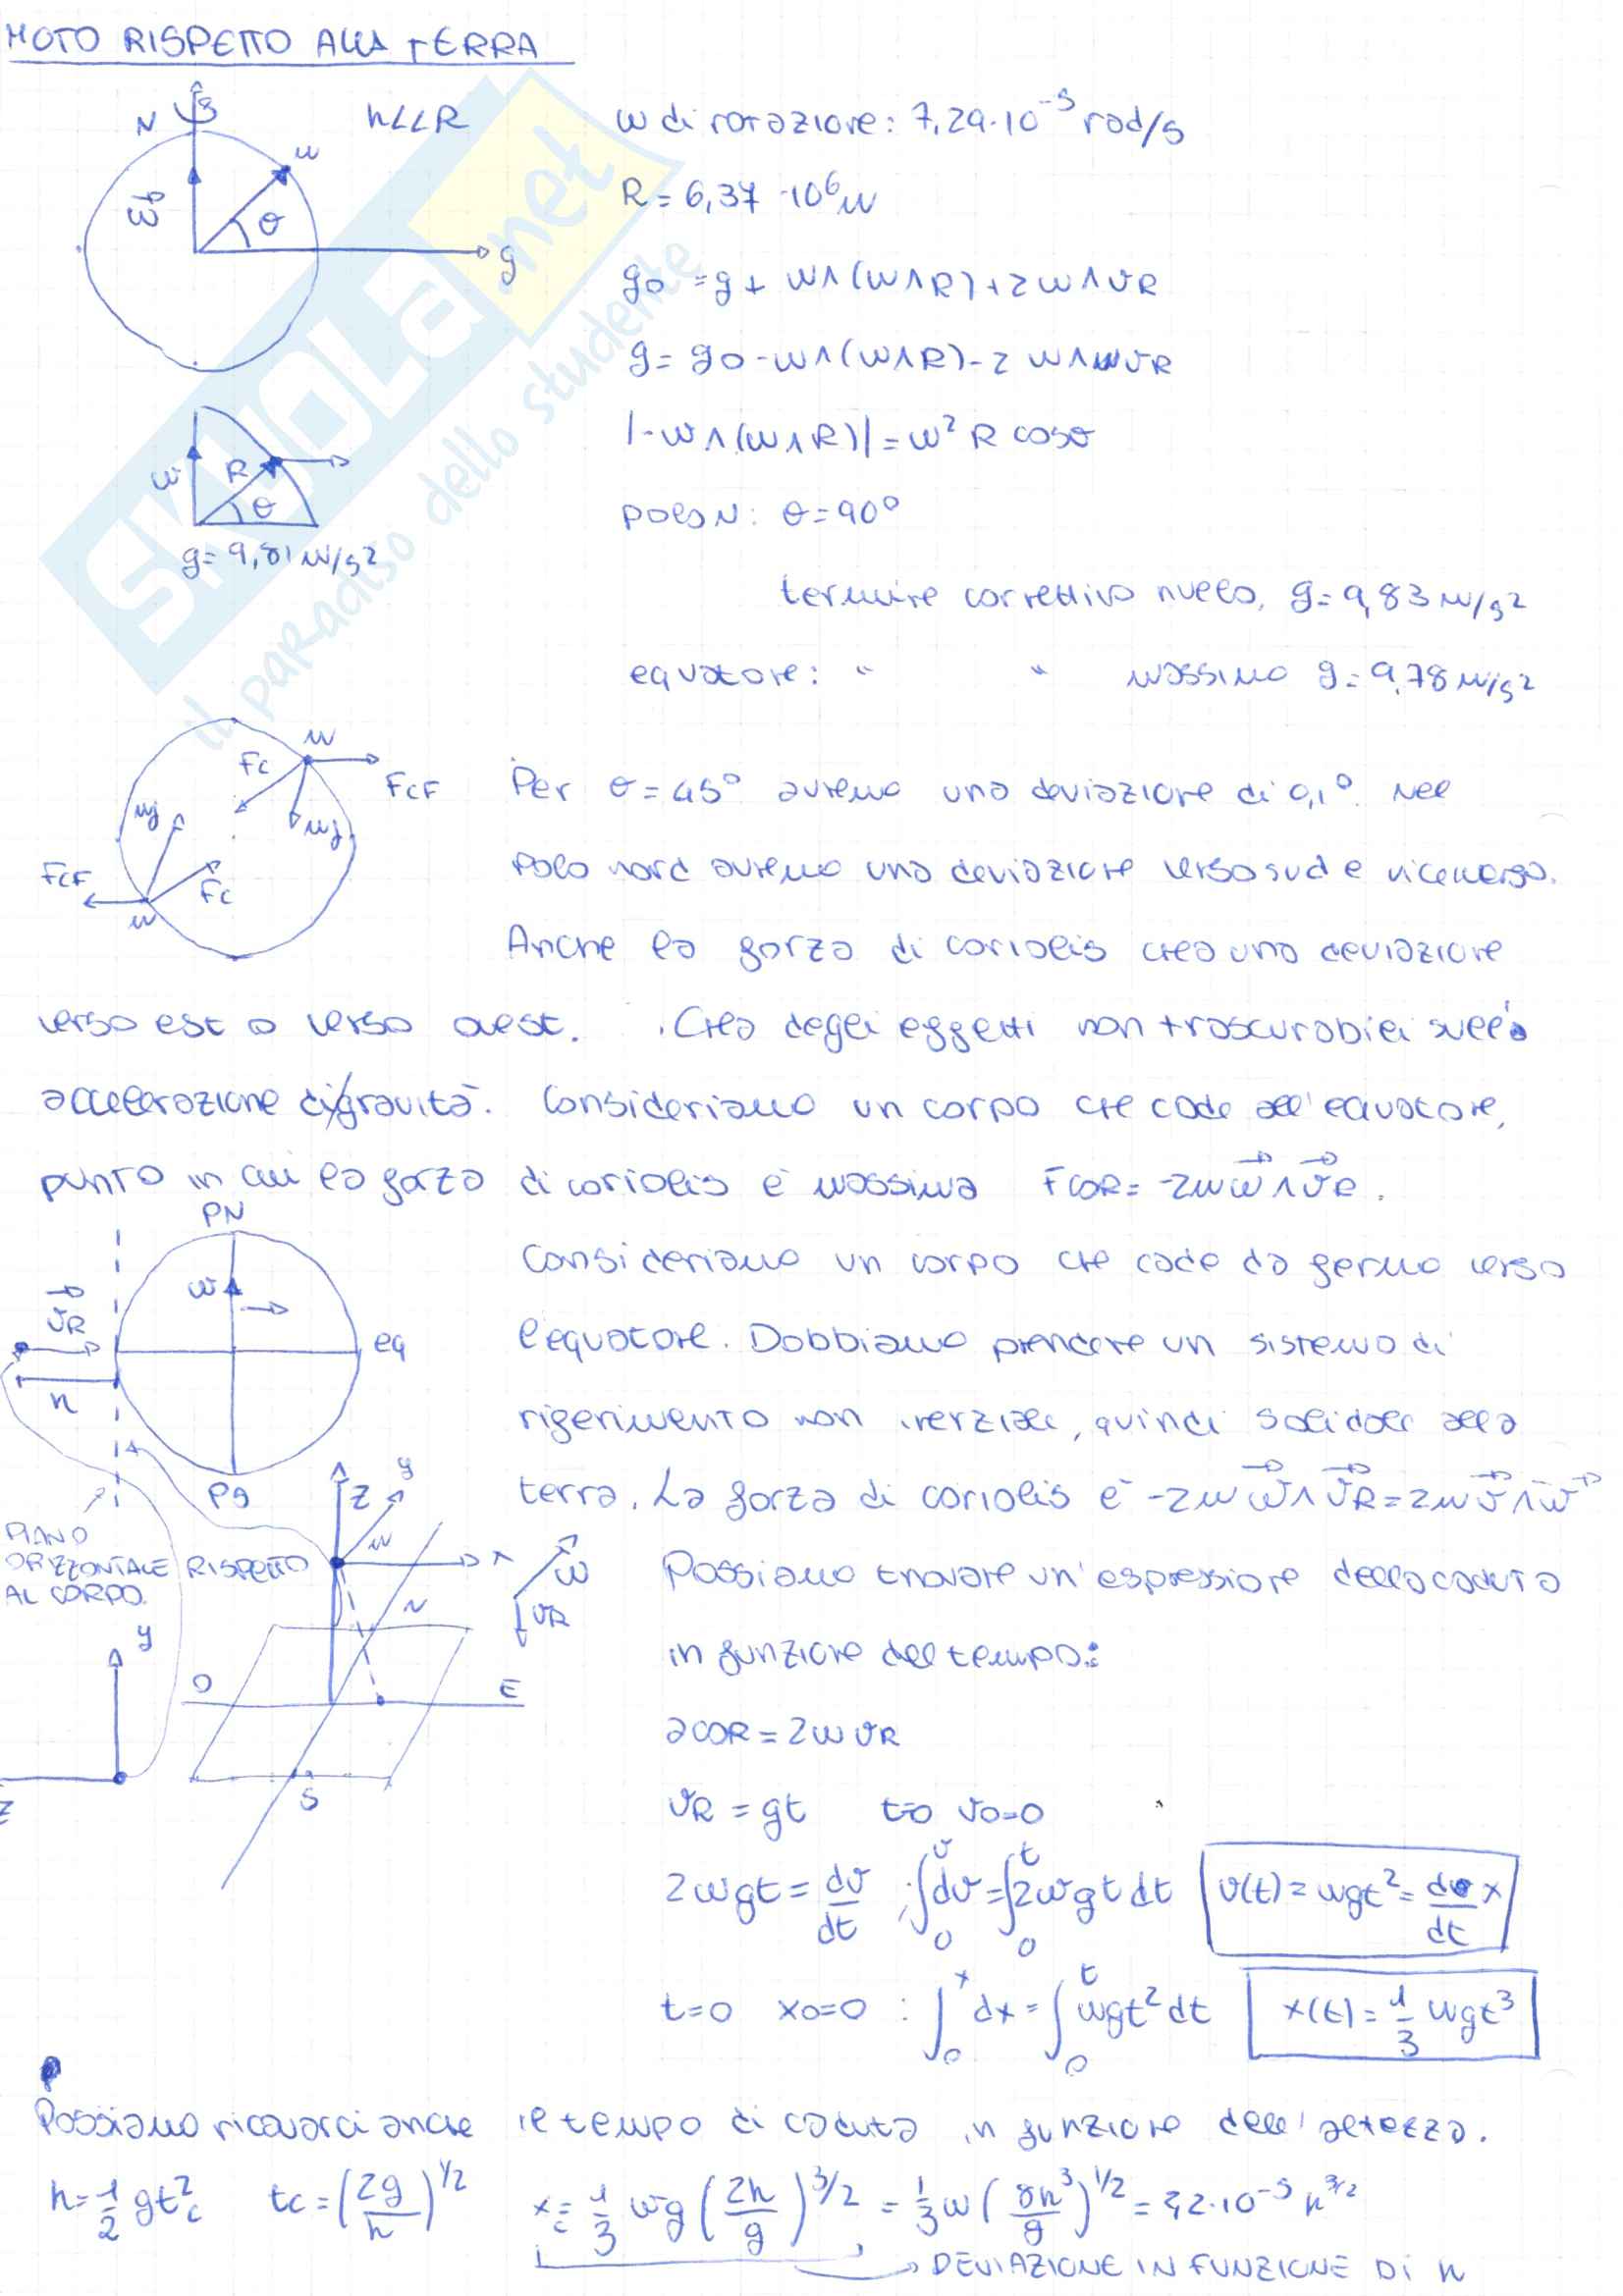 MOTO RISPETTO ALLA TERRA
N
h<<R
ω di rotazione: 7,29·10⁻⁵ rad/s
m
ω
θ
R = 6,37 ·10⁶ m
g
g₀ = g + ω∧(ω∧R)+2ω∧vR
g = g₀-ω∧(ω∧R)-2 ω∧vR
|-ω∧(ω∧R)| = ω² R cosθ
ω R θ
polo N: θ=90°
g= 9,81 m/s²
termine correttivo nullo, g= 9,83 m/s²
equatore: " " massimo g= 9,78 m/s²
m
Fc
FCF
mg
mg
FCF
Fc
m
Per θ=45° avremo una deviazione di 0,1°. Nel
polo nord avremo una deviazione verso sud e viceversa.
Anche la forza di coriolis crea una deviazione
verso est o verso ovest. Crea degli effetti non trascurabili sull'
accelerazione di gravità. Consideriamo un corpo che cade all'equatore,
punto in cui la forza di coriolis è massima FCOR= -2mω⃗∧v⃗R.
PN
ω
v⃗R
eq
h
PS
Consideriamo un corpo che cade da fermo verso
l'equatore. Dobbiamo prendere un sistema di
riferimento non inerziale, quindi solidale alla
terra. La forza di coriolis è -2mω⃗∧v⃗R=2mv⃗∧ω⃗
PIANO
ORIZZONTALE RISPETTO
AL CORPO.
z
y
m
x
ω
vR
N
O
E
S
y
z
Possiamo trovare un'espressione della caduta
in funzione del tempo:
aCOR = 2ωvR
vR = gt t=0 v₀=0
2ωgt = dv/dt ; ∫₀ᵛ dv = ∫₀ᵗ 2ωgt dt v(t) = ωgt² = dx/dt
t=0 x₀=0 : ∫₀ˣ dx = ∫₀ᵗ ωgt² dt x(t) = 1/3 ωgt³
Possiamo ricavarci anche il tempo di caduta in funzione dell'altezza.
h = 1/2 gtc² tc = (2g/h)^1/2 xc = 1/3 ωg (2h/g)^3/2 = 1/3 ω (8h³/g)^1/2 = 2,2·10⁻⁵ h^3/2
DEVIAZIONE IN FUNZIONE DI h
SKUOLA.net
il paradiso dello studente